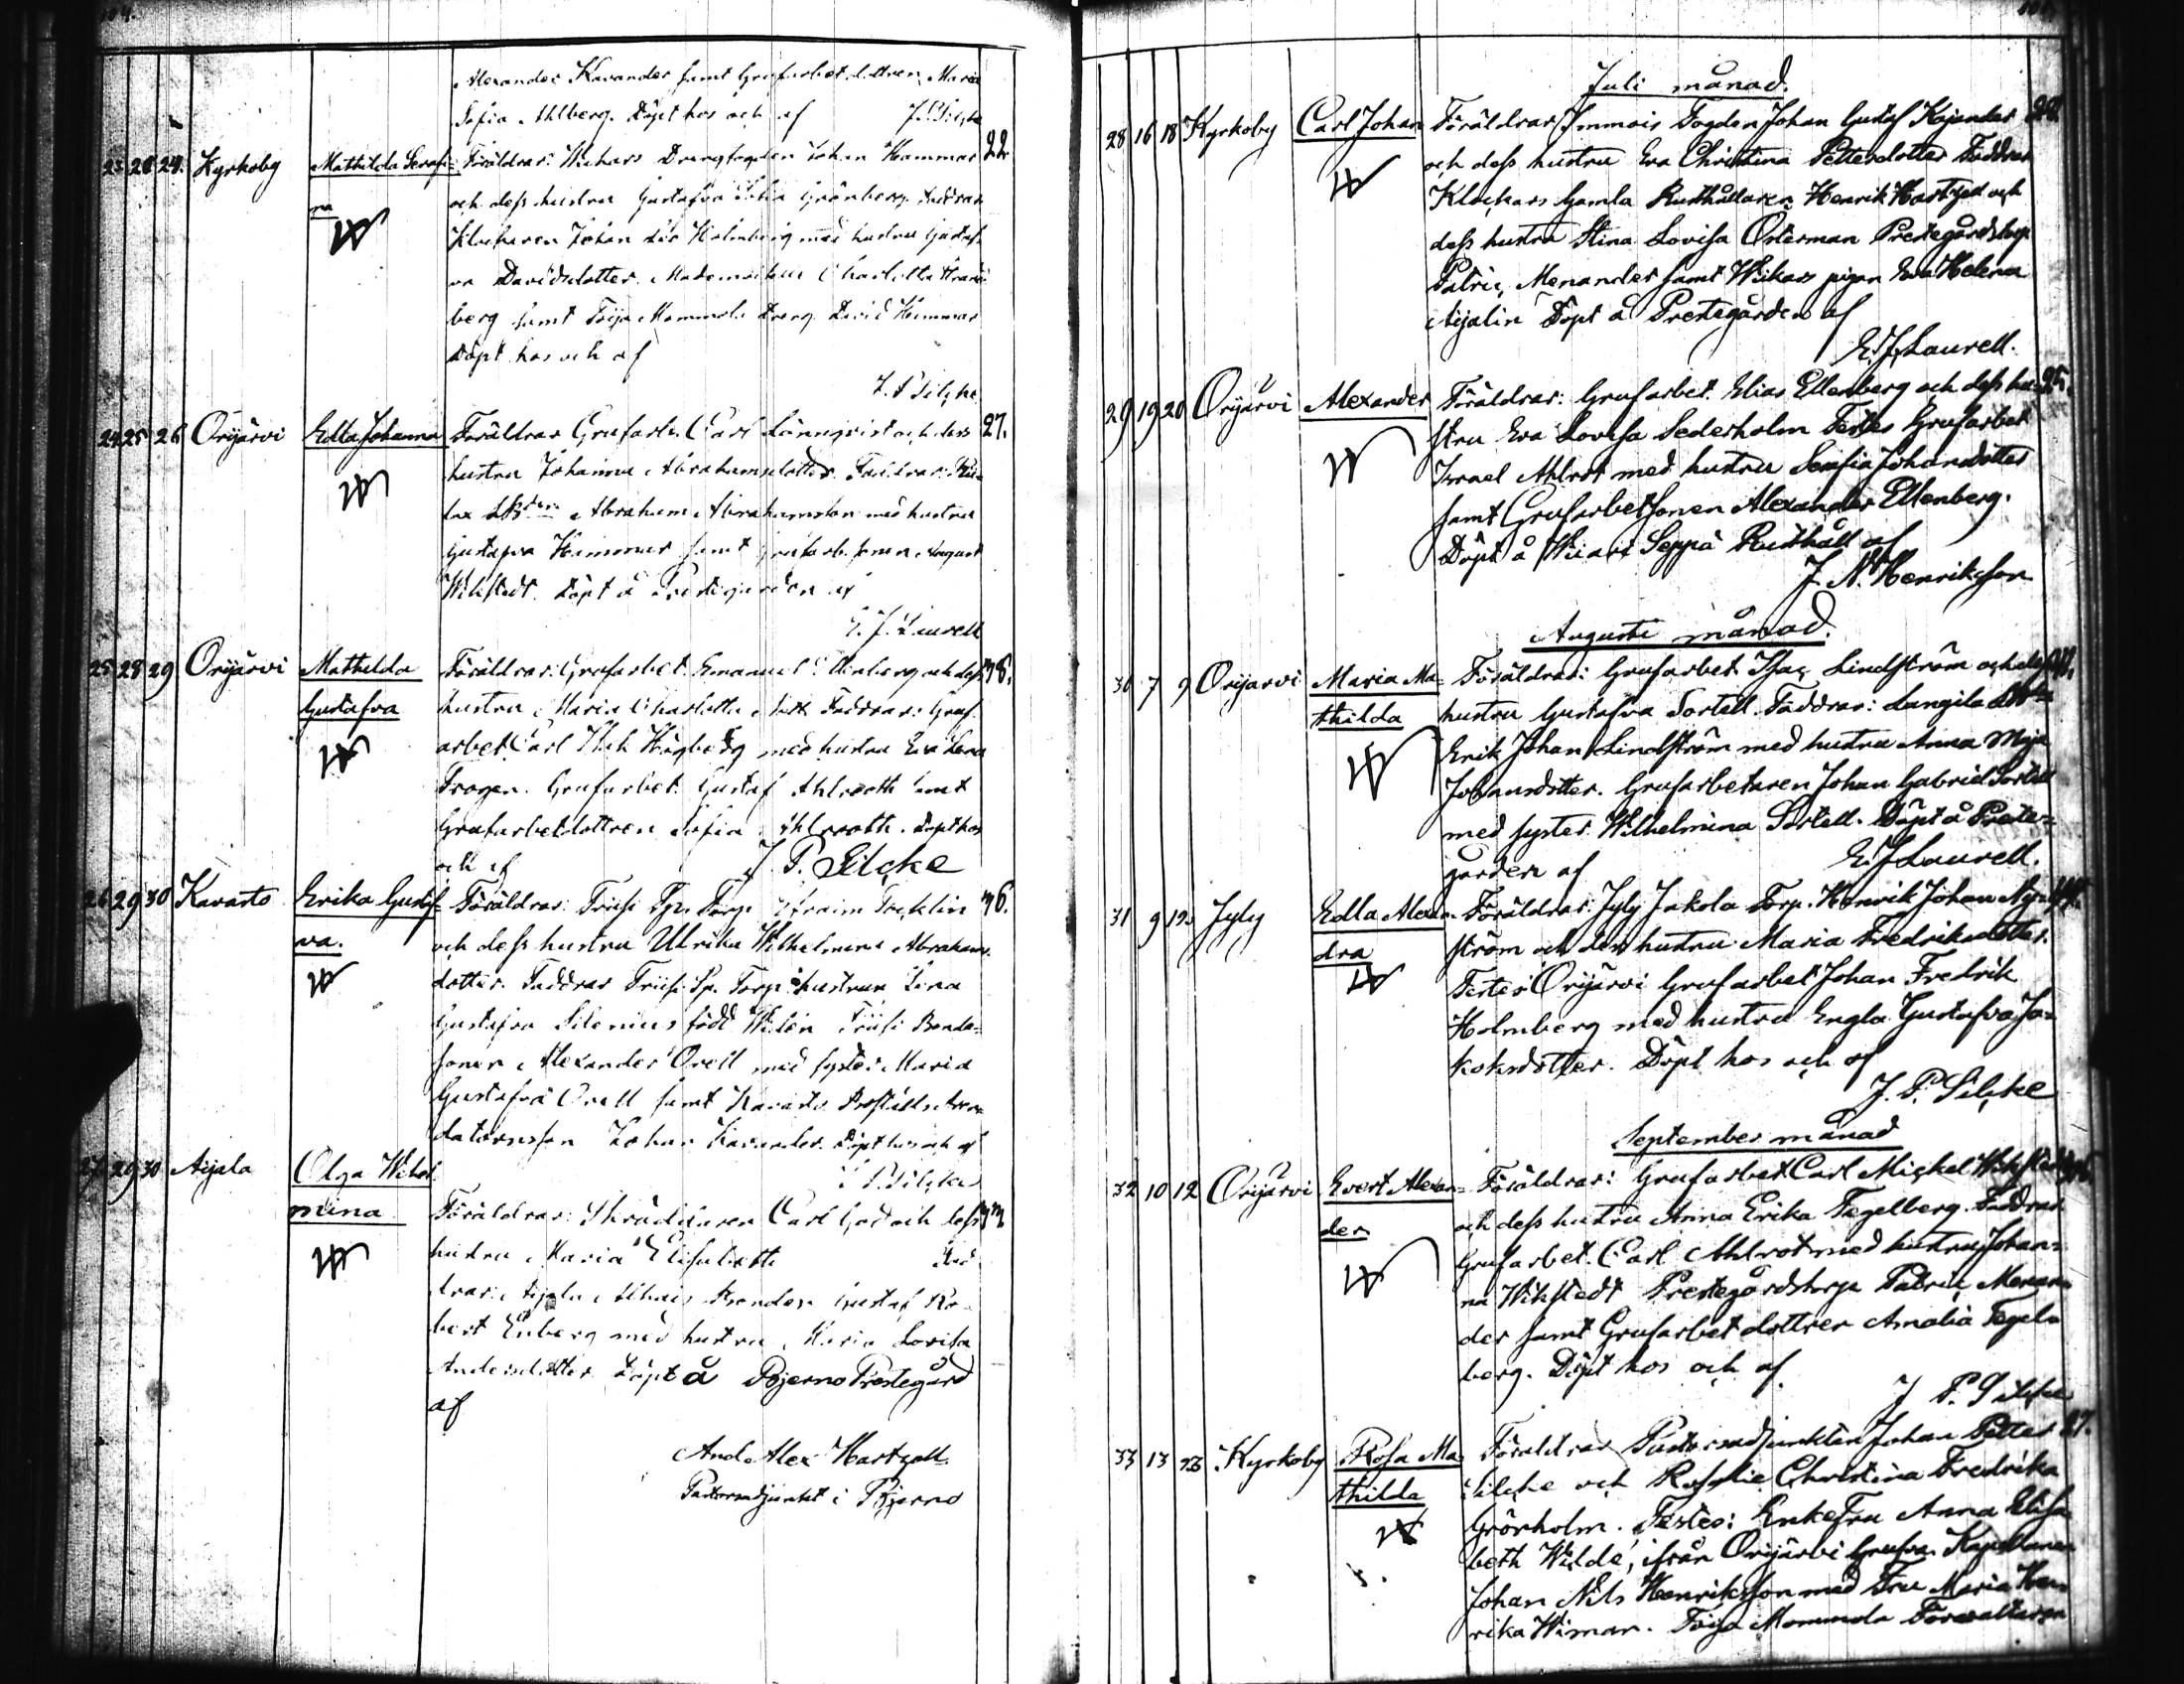 104.
Alexander Kavander samt Grufarbet. dottren Maria
Sofia Ahlberg. Döpt hos och af J. P. Silcke
23 28 29. Kyrkoby Mathilda Serafi= Föräldrar: Wichars Drengfogden Johan Hammar 22.
na och dess hustru Gustafva Sofia Grönberg. Faddrar
Klockaren Johan Holmberg med hustru Gustaf=
va Davidsdotter. Mademoiselle Charlotta
berg samt Toija Mommola Dreng David Hammar
Döpt hos och af
J. P. Silcke
24 25 26 Orijärvi Edla Johanna Föräldrar Grufarb. Carl Lönnqvist och dess 27.
hustru Johanna Abrahamsdotter. Faddrar:
Abraham Abrahamsson med hustru
Gustafva Hammar samt Grufarb. sonen August
Wikstedt. Döpt å Prestegården af
E. J. Laurell
25 28 29 Orijärvi Mathilda Föräldrar: Grufarbet. Emanuel och dess 38.
Gustafva hustru Maria Charlotta Faddrar: Gruf
arbet. Carl Högberg med hustru Eva Lena
Trogen. Grufarbet. Gustaf Ahlrooth samt
Grufarbet dottren Sofia Ahlrooth. Döpt hos
och af J. P. Silcke
26 29 30 Kavasto Erika Gustaf= Föräldrar: Torp. Efraim 36.
va. och dess hustru Ulrika Wilhelmina Abrahams
dotter. Faddrar Torp. hustrun Lena
Gustafva Silenius född Widen Bonde=
sonen Alexander Orell med syster Maria
Gustafva Orell samt Kavasto
datornsson Johan Kavander. Döpt hos och af
J. P. Silcke
27 29 30 Aijala Olga Wilhel
mina Föräldrar: Skräddaren Carl och dess
hustru Maria Elisabeth Fad
drar: Aijala Bonden Gustaf Ro=
bert Enberg med hustru Maria Lovisa
Andersdotter Döpt å Bjerno Prestegård
af
And. Alex Hartzell.
Pastorsadjunkt i Bjerno
Juli månad.
28 16 18 Kyrkoby Carl Johan Föräldrar Immois Fogden Johan Gustaf Kajander
och dess hustru Eva Christina Pettersdotter Faddrar
Klockars Gamla Rusthållaren Henrik Hartzell och
dess hustru Stina Lovisa Österman Prestegårdstorp.
Patric Menander samt Wikars pigan Eva Helena
Aijalin Döpt å Prestegården af
E. J. Laurell.
29 19 20 Orijärvi Alexander Föräldrar: Grufarbet. Elias Ellenberg och dess hu= 25.
stru Eva Lovisa Sederholm Testes Grufarbet
Israel Ahlrot med hustru Serafia Johansdotter
samt Grufarbetsonen Alexander Ellenberg.
Döpt å Wiiari Seppä Rusthåll af
J. N. Henriksson
Augusti månad.
30 7 9 Orijarvi Maria Ma= Föräldrar: Grufarbet. Isac Lindström och dess
thilda hustru Gustafva Sortell. Faddrar: Langila
Erik Johan Lindström med hustru Anna Maja
Johansdotter. Grufarbetaren Johan Gabriel Sortell
med syster Wilhelmina Sortell. Döpt å Preste=
gården af E. J. Laurell.
31 9 12 Jyly Edla Alexan Föräldrar: Jyly Jakola Torp. Henrik Johan Ny=
dra ström och dess hustru Maria Fredriksdotter.
Testes Orijärvi Grufarbet Johan Fredrik
Holmberg med hustru Engla Gustafva Ja=
kobsdotter. Döpt hos och af
J. P. Silcke
September månad
32 10 12 Orijärvi Evert Alexan= Föräldrar: Grufarbet. Carl Mickel Wikstedt
der och dess hustru Anna Erika Tegelberg. Faddrar
Grufarbet. Carl Ahlrot med hustru Johan=
na Wikstedt Prestegårdstorp. Patric Menan=
der samt Grufarbet dottrer Amalia Tegel=
berg. Döpt hos och af
J. P. Silcke
33 13 23 Kyrkoby Rosa Ma= Föräldrar Pastorsadjunkten Johan Petter 27.
thilda Silcke och Rosalie Christina Fredrika
Grönholm. Testes: Enkefru Anna Elisa
beth Wilde, ifrån Orijärvi Grufva. Kapellanen
Johan Nils Henriksson med Fru Maria Hen=
rika Wiman. Toija Mommola Förvaltaren